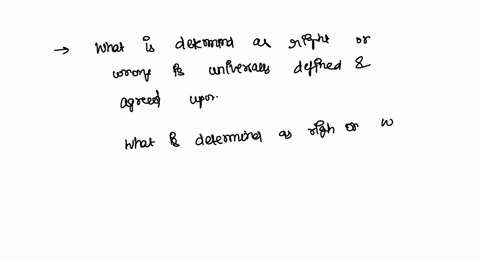 → What is determind as right or
wrong is universally defined &
agreed upon.
What is determined as righ or w